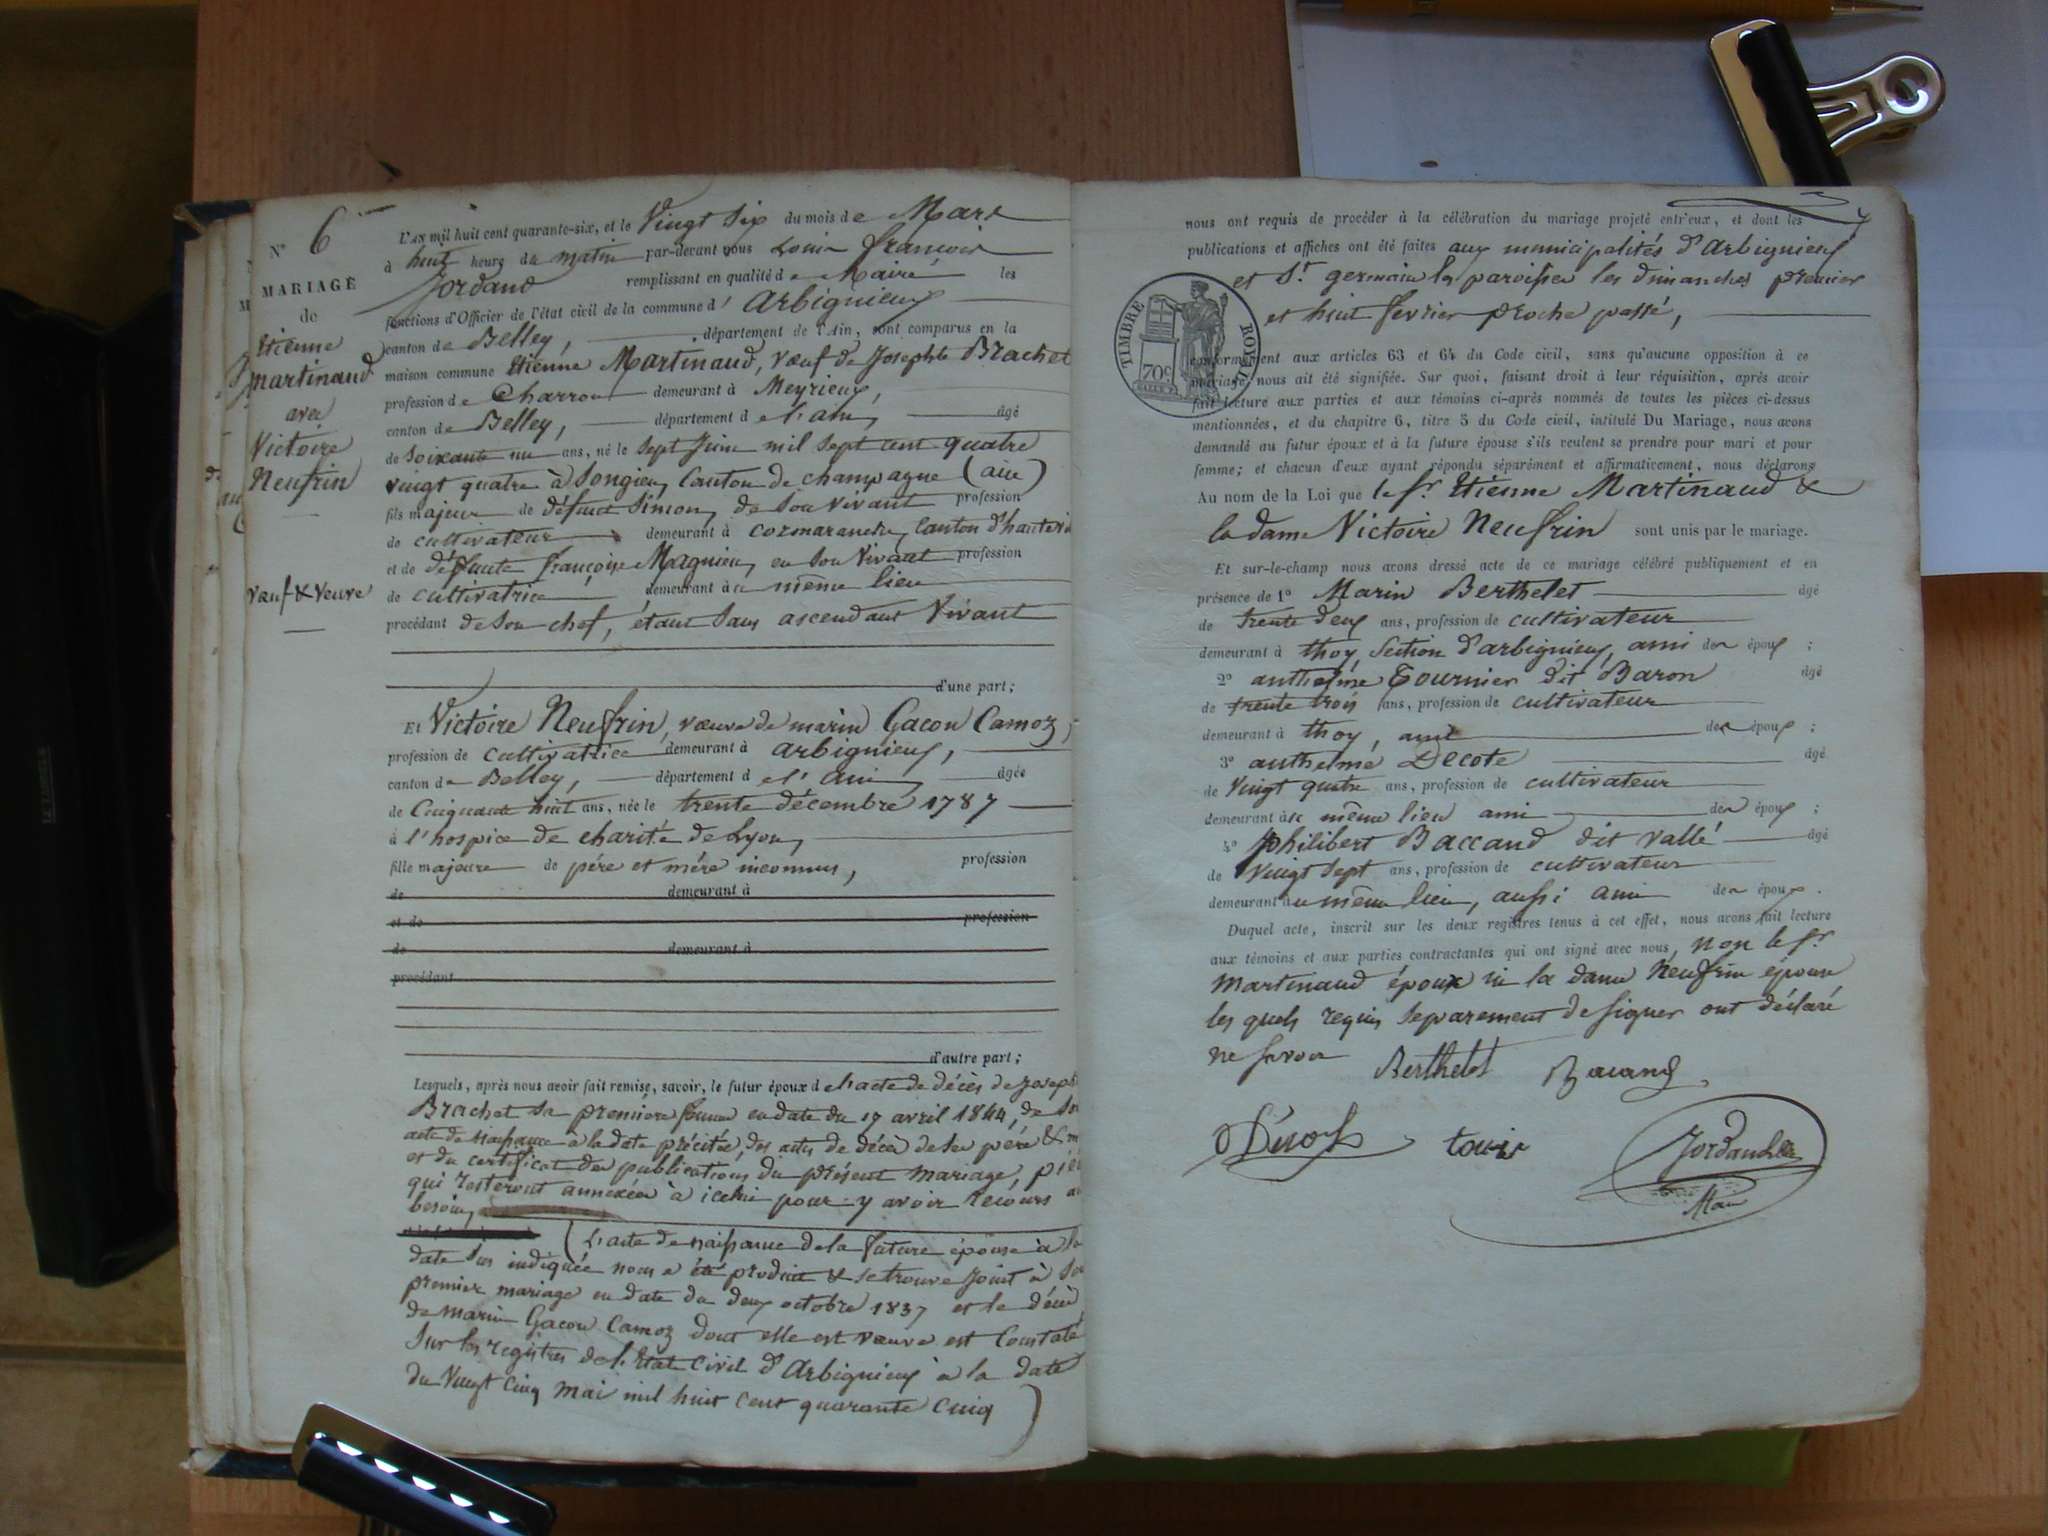 N° 6
MARIAGE
de
Etienne
martinaud
avec
Victoire
Neufrin
vauf & veuve
L'AN mil huit cent quarante-six, et le Vingt Six du mois de Mars
à huit heure du matin par-devant nous Louis françois
Jordand remplissant en qualité de Maire les
fonctions d'Officier de l'état civil de la commune d'Arbignieux
canton de Belley, département de l'Ain, sont comparus en la
maison commune Etienne Martinaud, vœuf de Josephte Brachet
profession de Charron demeurant à Meyrieux,
canton de Belley, département de l'ain, âgé
de Soixante un ans, né le Sept Juin mil Sept cent quatre
vingt quatre à Songieu, Canton de champagne (ain)
fils majeur de défunt Simon, de Son vivant profession
de cultivateur demeurant à cormaranche, Canton d'hautevi
et de défunte françoise Magnien, en Son Vivant profession
de cultivatrice demeurant au même lieu
procédant de Son chef, étant Sans ascendant Vivant
d'une part;
Et Victoire Neufrin, vœuve de marin Gacon Camoz,
profession de cultivatrice demeurant à arbignieux,
canton de Belley, département de l'Ain, âgée
de Cinquante huit ans, née le trente décembre 1787
à l'hospice de charité de Lyon,
fille majeure de père et mère inconnus, profession
de demeurant à
et de profession
de demeurant à
procédant
d'autre part;
Lesquels, après nous avoir fait remise, savoir, le futur époux de l'acte de décès de Joseph
Brachet Sa première femme en date du 17 avril 1844, de Son
acte de naissance à la date précitée, des actes de décès de Ses père & m
et du certificat des publications du présent mariage, piè
qui resteront annexées à icelui pour y avoir recours au
besoin,
(L'acte de naissance de la future épouse à la
date Sus indiquée nous a été produit & se trouve Joint à Son
premier mariage en date du deux octobre 1837 et le décès
de marin Gacon Camoz dont elle est vœuve est Constaté
Sur les registres de l'Etat Civil d'Arbignieux à la date
du Vingt Cinq mai mil huit cent quarante Cinq)
nous ont requis de procéder à la célébration du mariage projeté entr'eux, et dont les
publications et affiches ont été faites aux municipalités d'Arbignieux
et St. germain les paroisses les dimanches premier
et huit février proche passé,
TIMBRE ROYAL
70c
conformément aux articles 63 et 64 du Code civil, sans qu'aucune opposition à ce
mariage nous ait été signifiée. Sur quoi, faisant droit à leur réquisition, après avoir
fait lecture aux parties et aux témoins ci-après nommés de toutes les pièces ci-dessus
mentionnées, et du chapitre 6, titre 5 du Code civil, intitulé Du Mariage, nous avons
demandé au futur époux et à la future épouse s'ils veulent se prendre pour mari et pour
femme; et chacun d'eux ayant répondu séparément et affirmativement, nous déclarons
Au nom de la Loi que le Sr. Etienne Martinaud &
la dame Victoire Neufrin sont unis par le mariage.
Et sur-le-champ nous avons dressé acte de ce mariage célébré publiquement et en
présence de 1° Marin Berthelet âgé
de trente deux ans, profession de cultivateur
demeurant à thoy Section d'arbignieux, ami des époux ;
2° anthelme Tournier dit Baron âgé
de trente trois ans, profession de cultivateur
demeurant à thoy, ami des époux ;
3° anthelme Decote âgé
de Vingt quatre ans, profession de cultivateur
demeurant au même lieu ami des époux ;
4° philibert Baccand dit vallé âgé
de Vingt Sept ans, profession de cultivateur
demeurant au même lieu, aussi ami des époux.
Duquel acte, inscrit sur les deux registres tenus à cet effet, nous avons fait lecture
aux témoins et aux parties contractantes qui ont signé avec nous, non le Sr
Martinaud époux ni la dame Neufrin épouse
les quels requis Séparement de Signer ont déclaré
ne Savoir
Berthelet
Bacand
Jordand
Maire